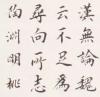 漢無論魏
云不足為
尋向所志
陶淵明桃